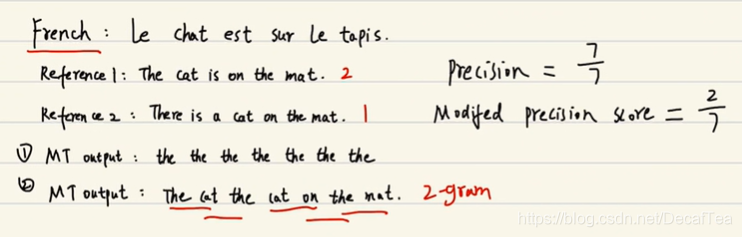 French : Le chat est sur le tapis.
Reference 1 : The cat is on the mat. 2
Precision = 7/7
Reference 2 : There is a cat on the mat. 1
Modifed precision score = 2/7
① MT output : the the the the the the the
② MT output : The cat the cat on the mat. 2-gram
https://blog.csdn.net/DecafTea